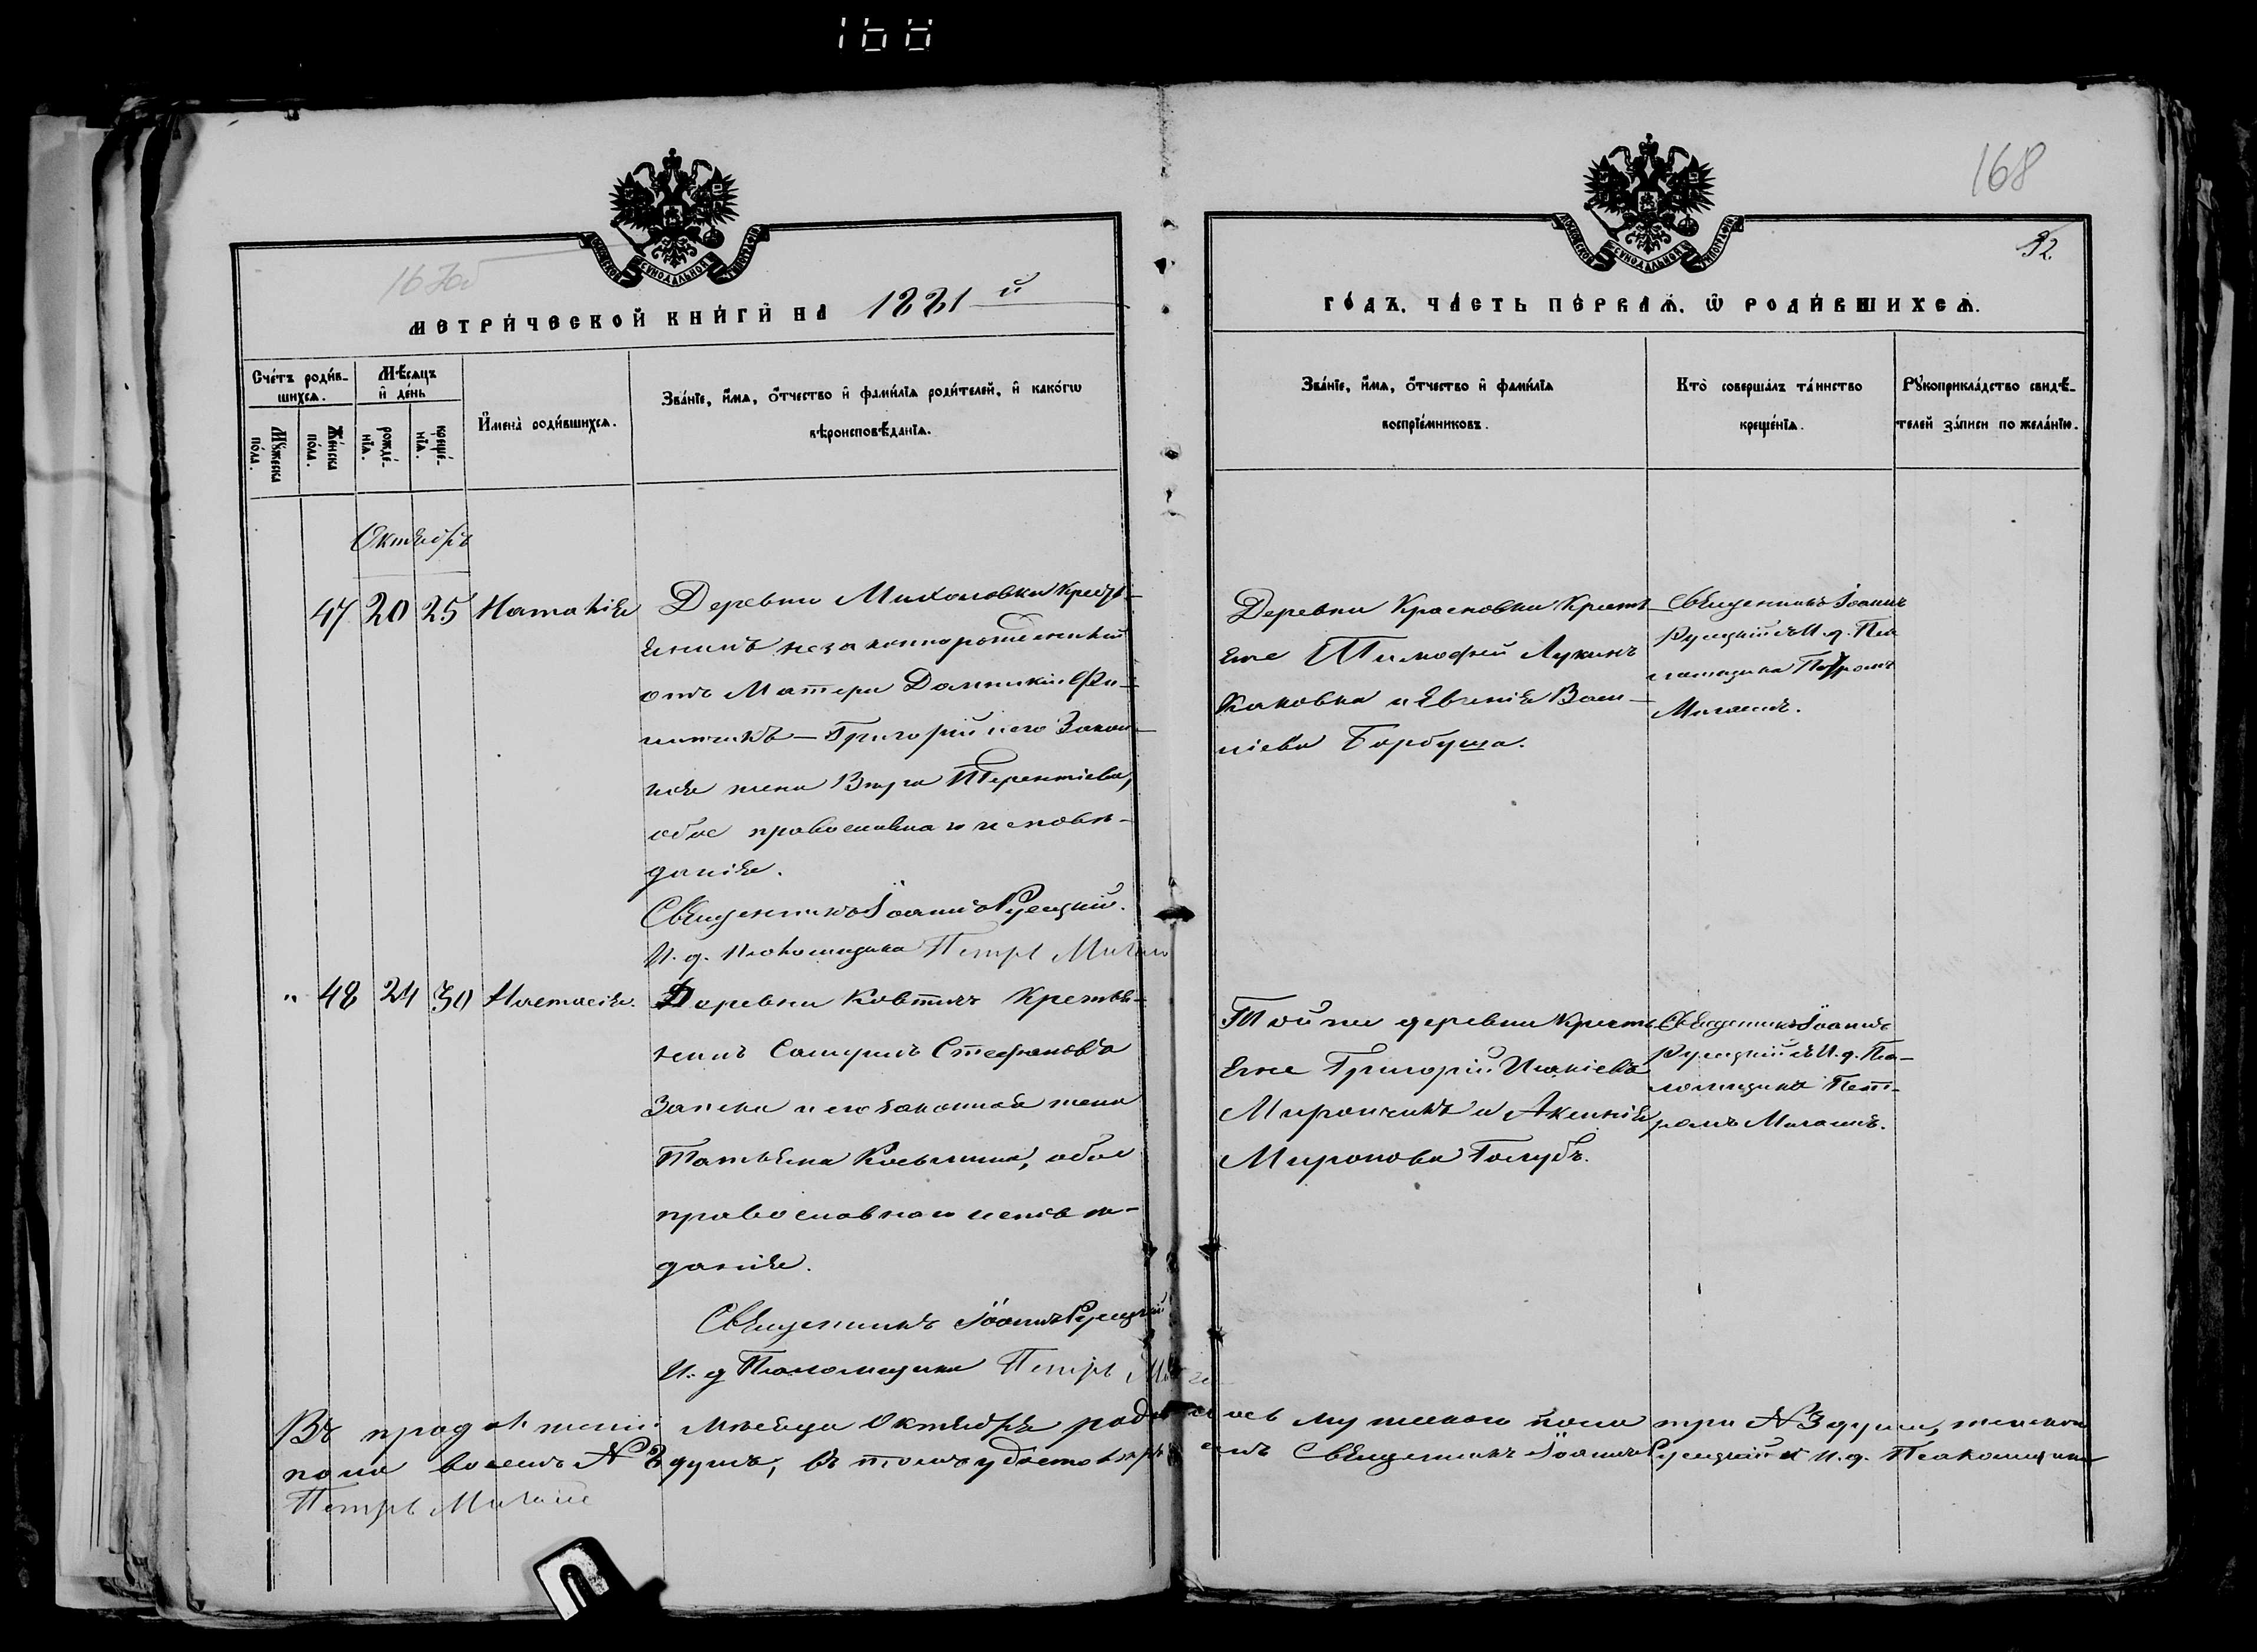 168
168
32.
167об
МЕТРИ́ЧЕСКОЙ КНИ́ГИ НА 1881й
ГО́ДЪ. ЧА́СТЬ ПЕ́РВАѦ. Ѡ РОДИ́ВШИХСѦ.
Сче́тъ роди́в-
шихсѧ.
Мѣ́сѧцъ
и де́нь
Му́жеска
по́ла.
Же́нска
по́ла.
рожде́-
нїѧ.
креще́-
нїѧ.
Имена̀ роди́вшихсѧ.
Зва́нїе, и́мѧ, о́тчество и фами́лїѧ роди́телей, и како́гѡ
вѣроисповѣ́данїѧ.
Зва́нїе, и́мѧ, о́тчество и фами́лїѧ
воспрїе́мниковъ.
Кто̀ соверша́лъ та́инство
креще́нїѧ.
Рꙋкоприкла́дство свидѣ́-
телей за́писи по жела́нїю.
Октябрь
47 20 25 Наталія
Деревни Михаловки Кресть-
янинъ незаконнорожденный
отъ Матери Домникіи
Григорій и его Закон-
ная жена Вѣра Терентіева,
обое православнаго исповѣ-
данія.
Священникъ Іоаннъ Русецкій.
И. д. Псаломщика Петръ
Деревни Красновки Крестья-
не Тимофей Лукинъ
и Евгенія Васи-
ліева Барбуша.
Священникъ Іоаннъ
Русецкій съ И. д. Пса-
ломщика Петромъ
" 48 24 30 Анастасія.
Деревни Ковтичъ Крестья-
нинъ Стефановъ
Запека и его законная жена
Татьяна, обое
православнаго исповѣ-
данія.
Священникъ Іоаннъ Русецкій
И. д. Псаломщика Петръ
Той же деревни Крестья-
не Григорій Игнатіевъ
Мирончикъ и Аксинія
Миронова Голубъ.
Священникъ Іоаннъ
Русецкій съ И. д. Пса-
ломщика Пет-
ромъ
Въ продолженіи мѣсяца Октября родилось мужескаго пола три № 3 души, женскаго
пола восемь № 8 душъ, въ томъ удостовѣряемъ Священникъ Іоаннъ Русецкій и И. д. Псаломщика
Петръ